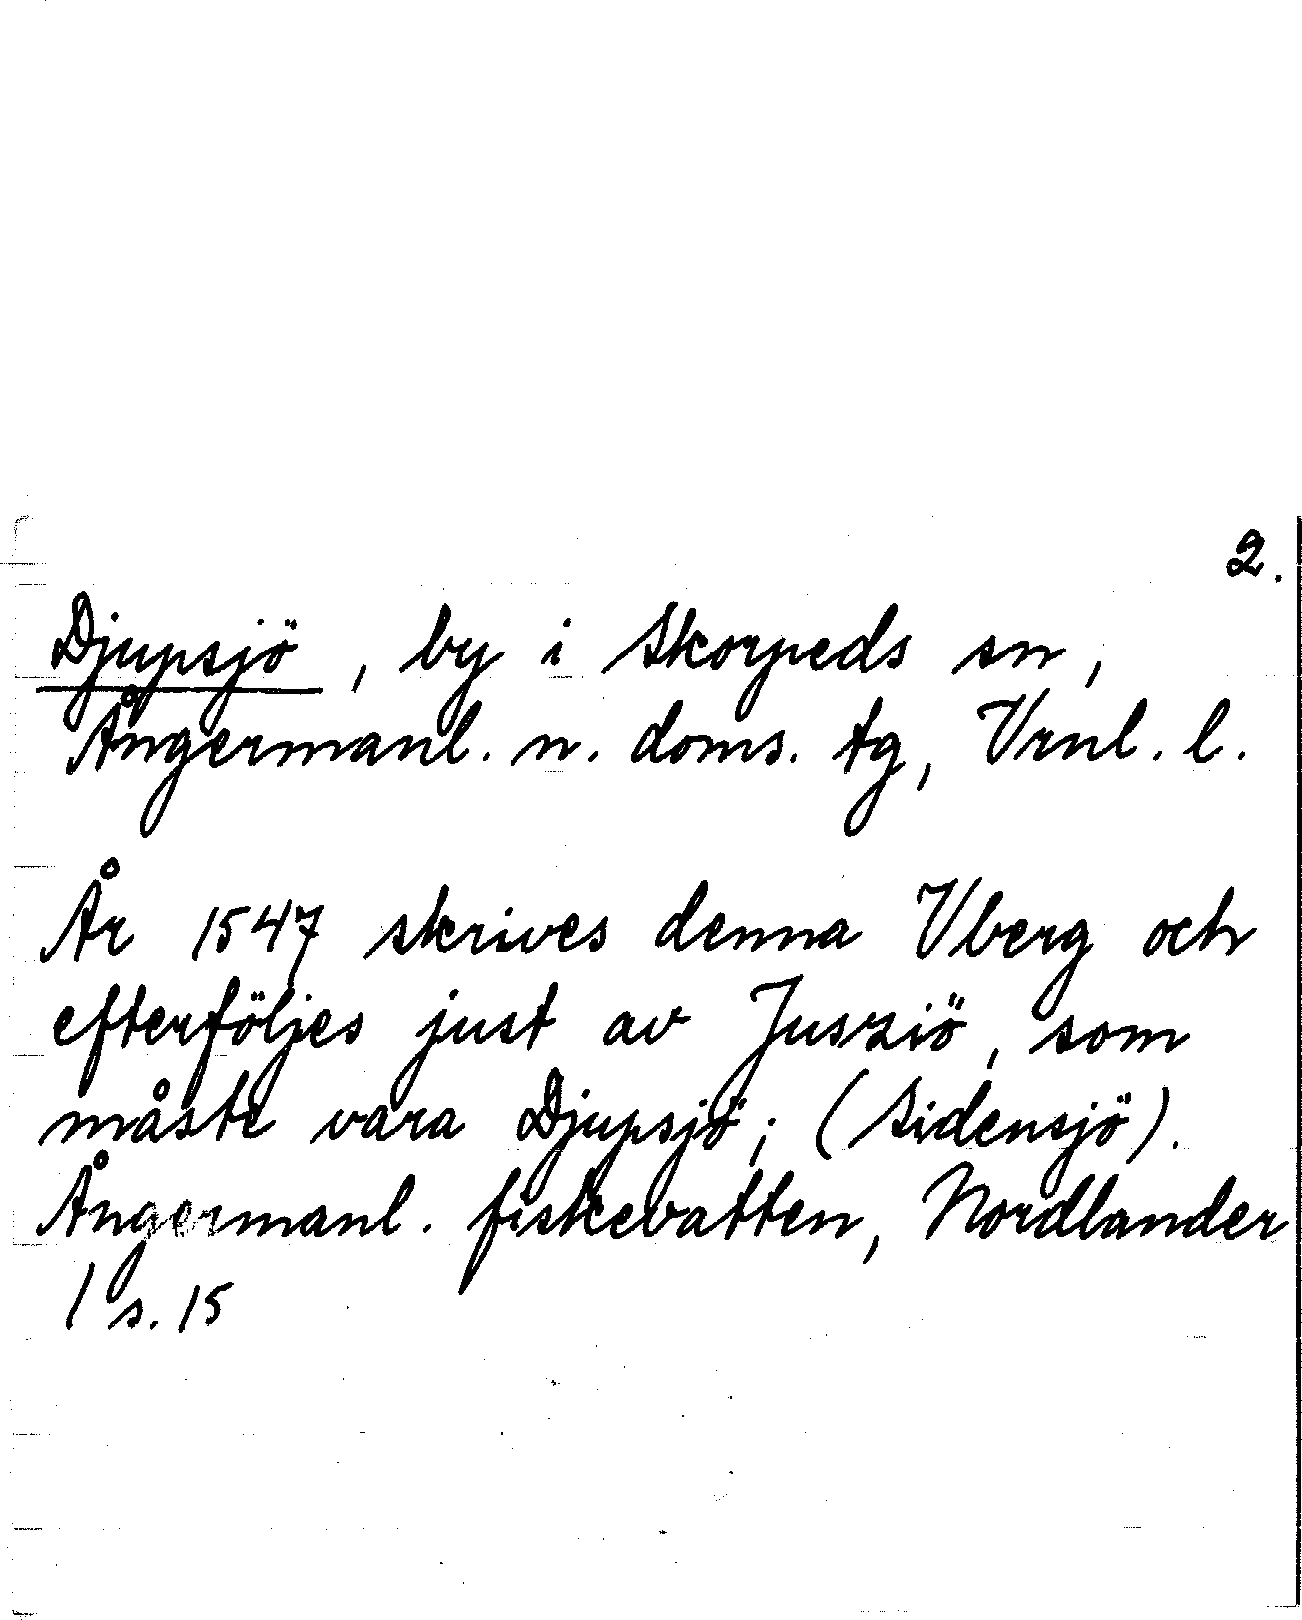 2.
Djupsjö, by i Skorpeds sn,
Ångermanl. n. doms. tg, Vrnl. l.
År 1547 skrives denna Vberg och
efterföljes just av Juszsiö, som
måste vara Djupsjö; (Sidensjö).
Ångermanl. fiskevatten, Nordlander
1 s. 15